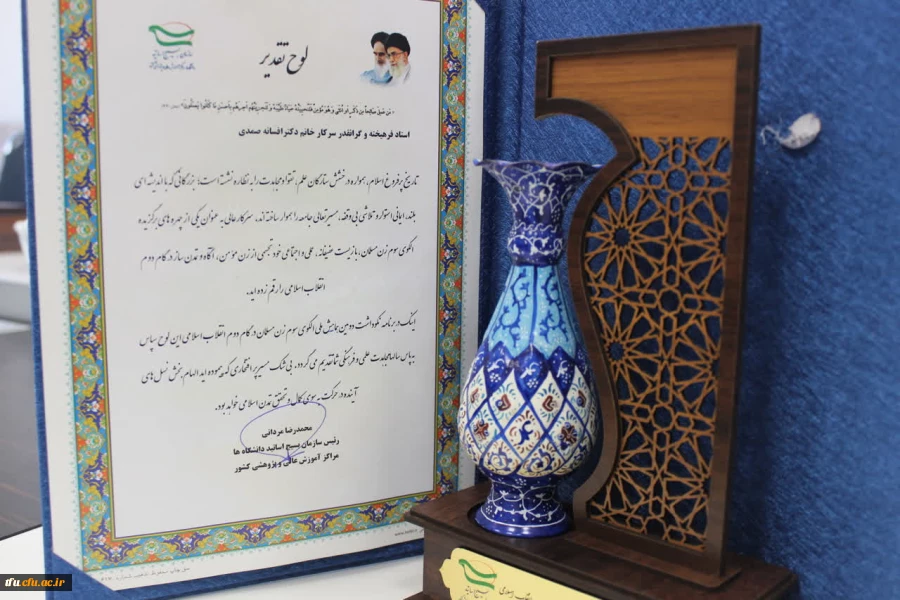 لوح تقدیر
استاد فرهیخته و گرانقدر سرکار خانم دکتر افسانه صمدی
تاریخ پرفروغ اسلام، همواره درخشش ستارگان علم، تقوا و مجاهدت را به نظاره نشسته است؛ بزرگانی که با اندیشه‌ای
بلند، ایمانی استوار و تلاشی بی‌وقفه، مسیر تعالی جامعه را هموار ساخته‌اند. سرکارعالی به عنوان یکی از چهره‌های برگزیده
الگوی سوم زن مسلمان، با زیست عفیفانه، علمی و اجتماعی خود تجسمی از زن مؤمن، آگاه و تمدن ساز در گام دوم
انقلاب اسلامی را رقم زده‌اید.
اینک در برنامه نکوداشت دومین همایش ملی الگوی سوم زن مسلمان در گام دوم انقلاب اسلامی این لوح سپاس
به پاس سالها مجاهدت علمی و فرهنگی شما تقدیم می‌گردد، بی‌شک مسیر پر افتخاری که پیموده‌اید الهام بخش نسل‌های
آینده در حرکت به سوی کمال و تحقق تمدن اسلامی خواهد بود.
محمدرضا مردانی
رئیس سازمان بسیج اساتید دانشگاه ها
مراکز آموزش عالی و پژوهشی کشور
tfu.cfu.ac.ir